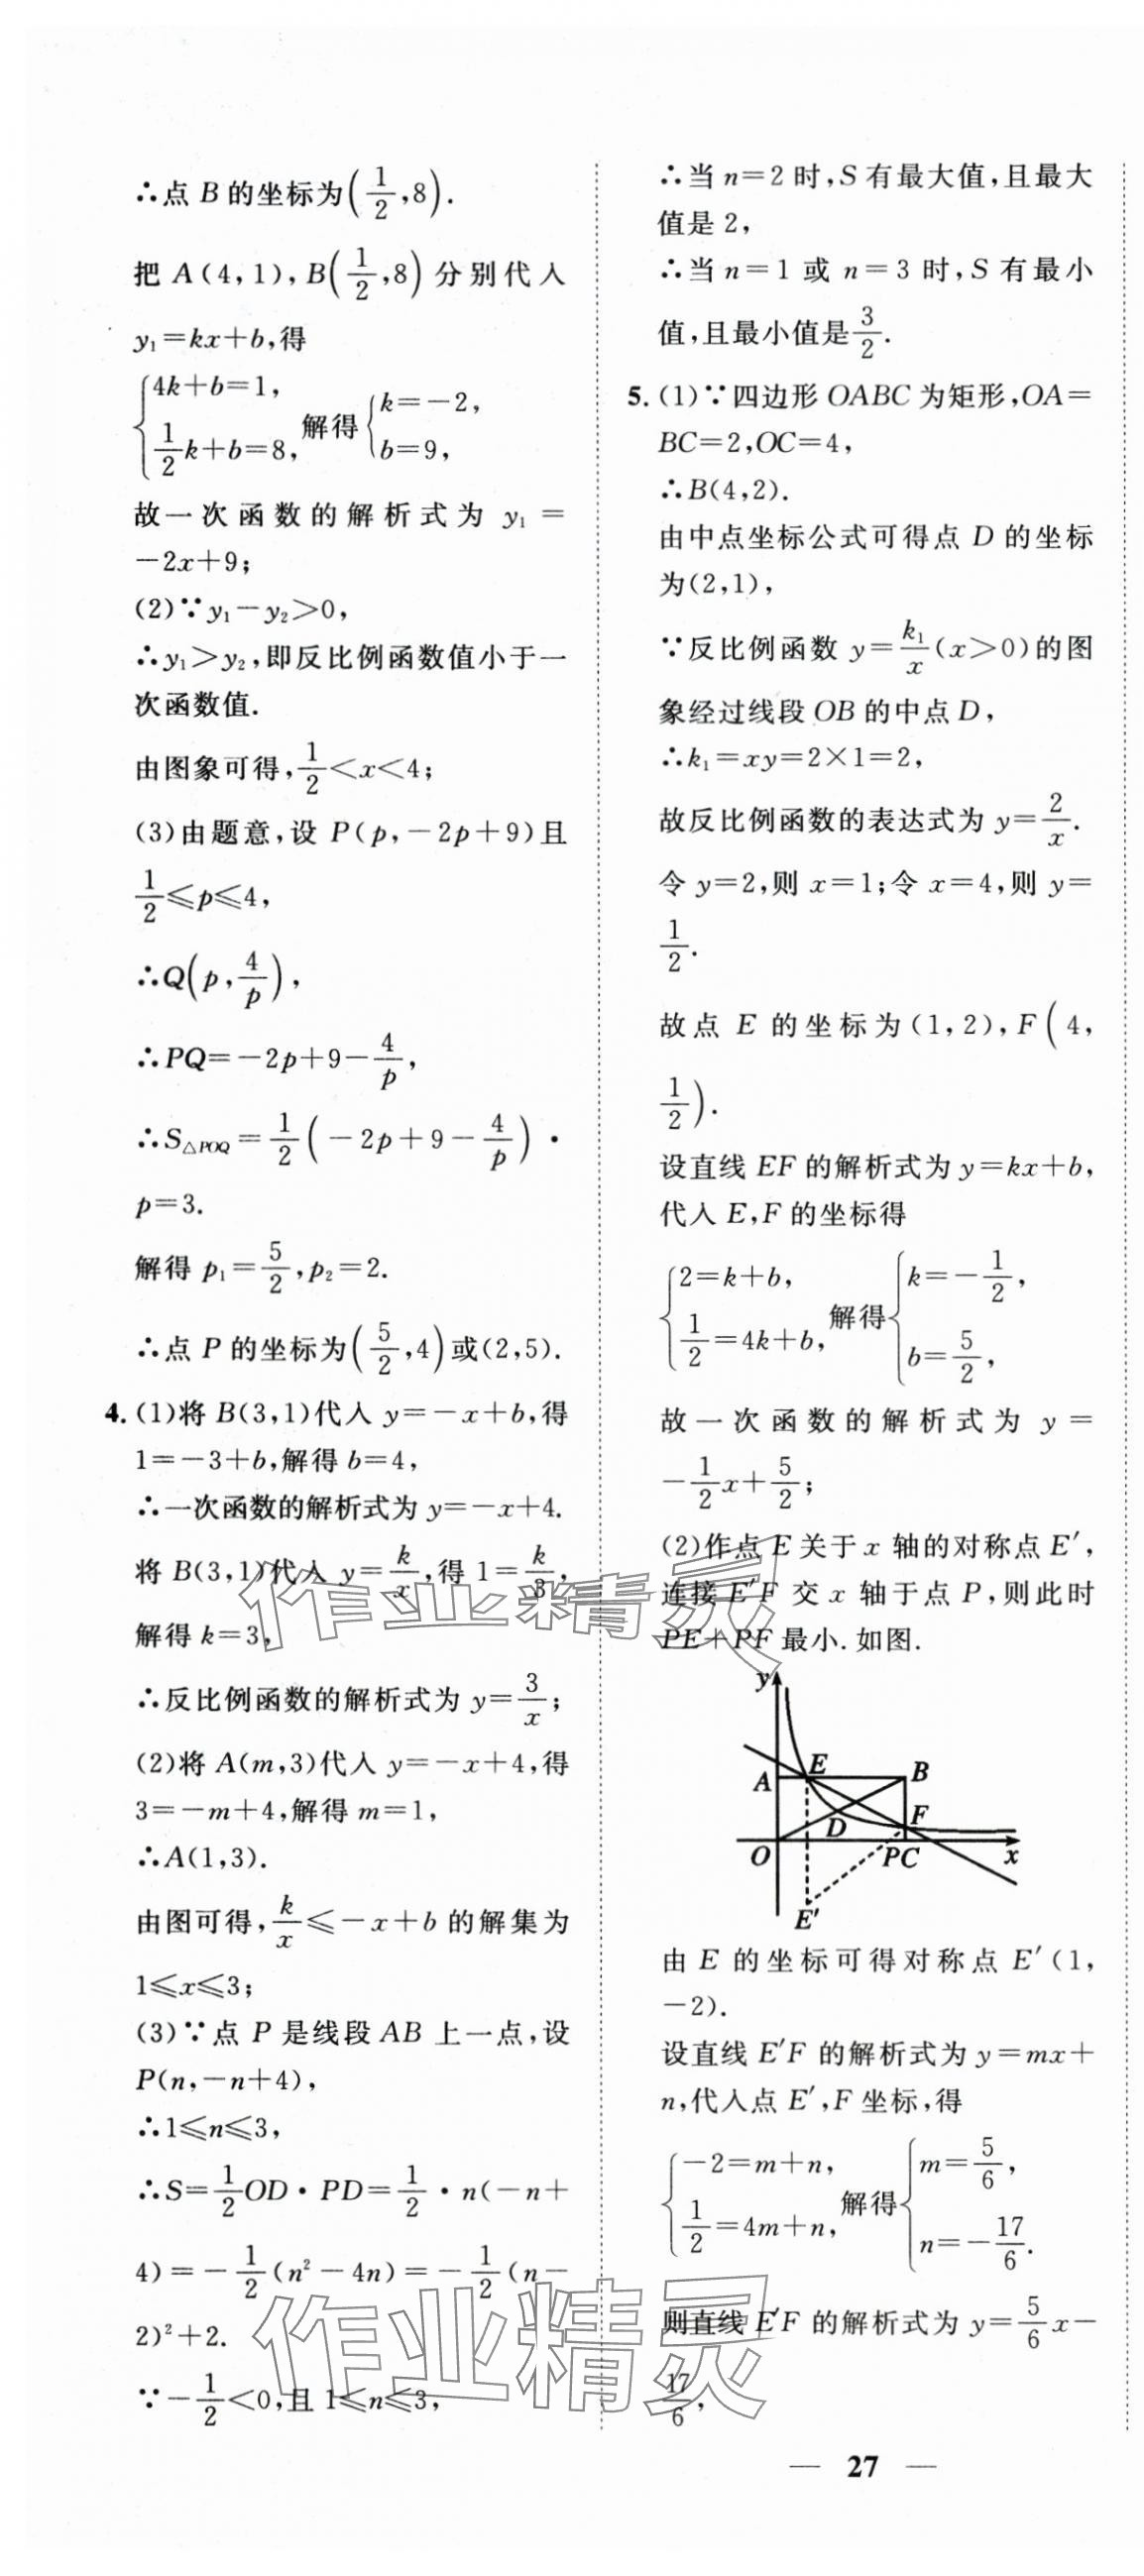 ∴点 B 的坐标为(1/2,8).
把 A(4,1),B(1/2,8)分别代入
y₁=kx+b,得
{4k+b=1, 1/2k+b=8, 解得{k=-2, b=9,
故一次函数的解析式为 y₁=
-2x+9;
(2)∵y₁-y₂>0,
∴y₁>y₂,即反比例函数值小于一
次函数值.
由图象可得,1/2<x<4;
(3)由题意,设 P(p,-2p+9)且
1/2≤p≤4,
∴Q(p,4/p),
∴PQ=-2p+9-4/p,
∴S△POQ=1/2(-2p+9-4/p)·
p=3.
解得 p₁=5/2,p₂=2.
∴点 P 的坐标为(5/2,4)或(2,5).
4.(1)将 B(3,1)代入 y=-x+b,得
1=-3+b,解得 b=4,
∴一次函数的解析式为 y=-x+4.
将 B(3,1)代入 y=k/x,得 1=k/3,
解得 k=3,
∴反比例函数的解析式为 y=3/x;
(2)将 A(m,3)代入 y=-x+4,得
3=-m+4,解得 m=1,
∴A(1,3).
由图可得,k/x≤-x+b 的解集为
1≤x≤3;
(3)∵点 P 是线段 AB 上一点,设
P(n,-n+4),
∴1≤n≤3,
∴S=1/2OD·PD=1/2·n(-n+
4)=-1/2(n²-4n)=-1/2(n-
2)²+2.
∵-1/2<0,且 1≤n≤3,
∴当 n=2 时,S 有最大值,且最大
值是 2,
∴当 n=1 或 n=3 时,S 有最小
值,且最小值是3/2.
5.(1)∵四边形 OABC 为矩形,OA=
BC=2,OC=4,
∴B(4,2).
由中点坐标公式可得点 D 的坐标
为(2,1),
∵反比例函数 y=k₁/x(x>0)的图
象经过线段 OB 的中点 D,
∴k₁=xy=2×1=2,
故反比例函数的表达式为 y=2/x.
令 y=2,则 x=1;令 x=4,则 y=
1/2.
故点 E 的坐标为(1,2),F(4,
1/2).
设直线 EF 的解析式为 y=kx+b,
代入 E,F 的坐标得
{2=k+b, 1/2=4k+b, 解得{k=-1/2, b=5/2,
故一次函数的解析式为 y=
-1/2x+5/2;
(2)作点 E 关于 x 轴的对称点 E′,
连接 E′F 交 x 轴于点 P,则此时
PE+PF 最小.如图.
y
A E B
D F
O P C x
E′
由 E 的坐标可得对称点 E′(1,
-2).
设直线 E′F 的解析式为 y=mx+
n,代入点 E′,F 坐标,得
{-2=m+n, 1/2=4m+n, 解得{m=5/6, n=-17/6.
则直线 E′F 的解析式为 y=5/6x-
17/6,
作业精灵
作业精灵
— 27 —